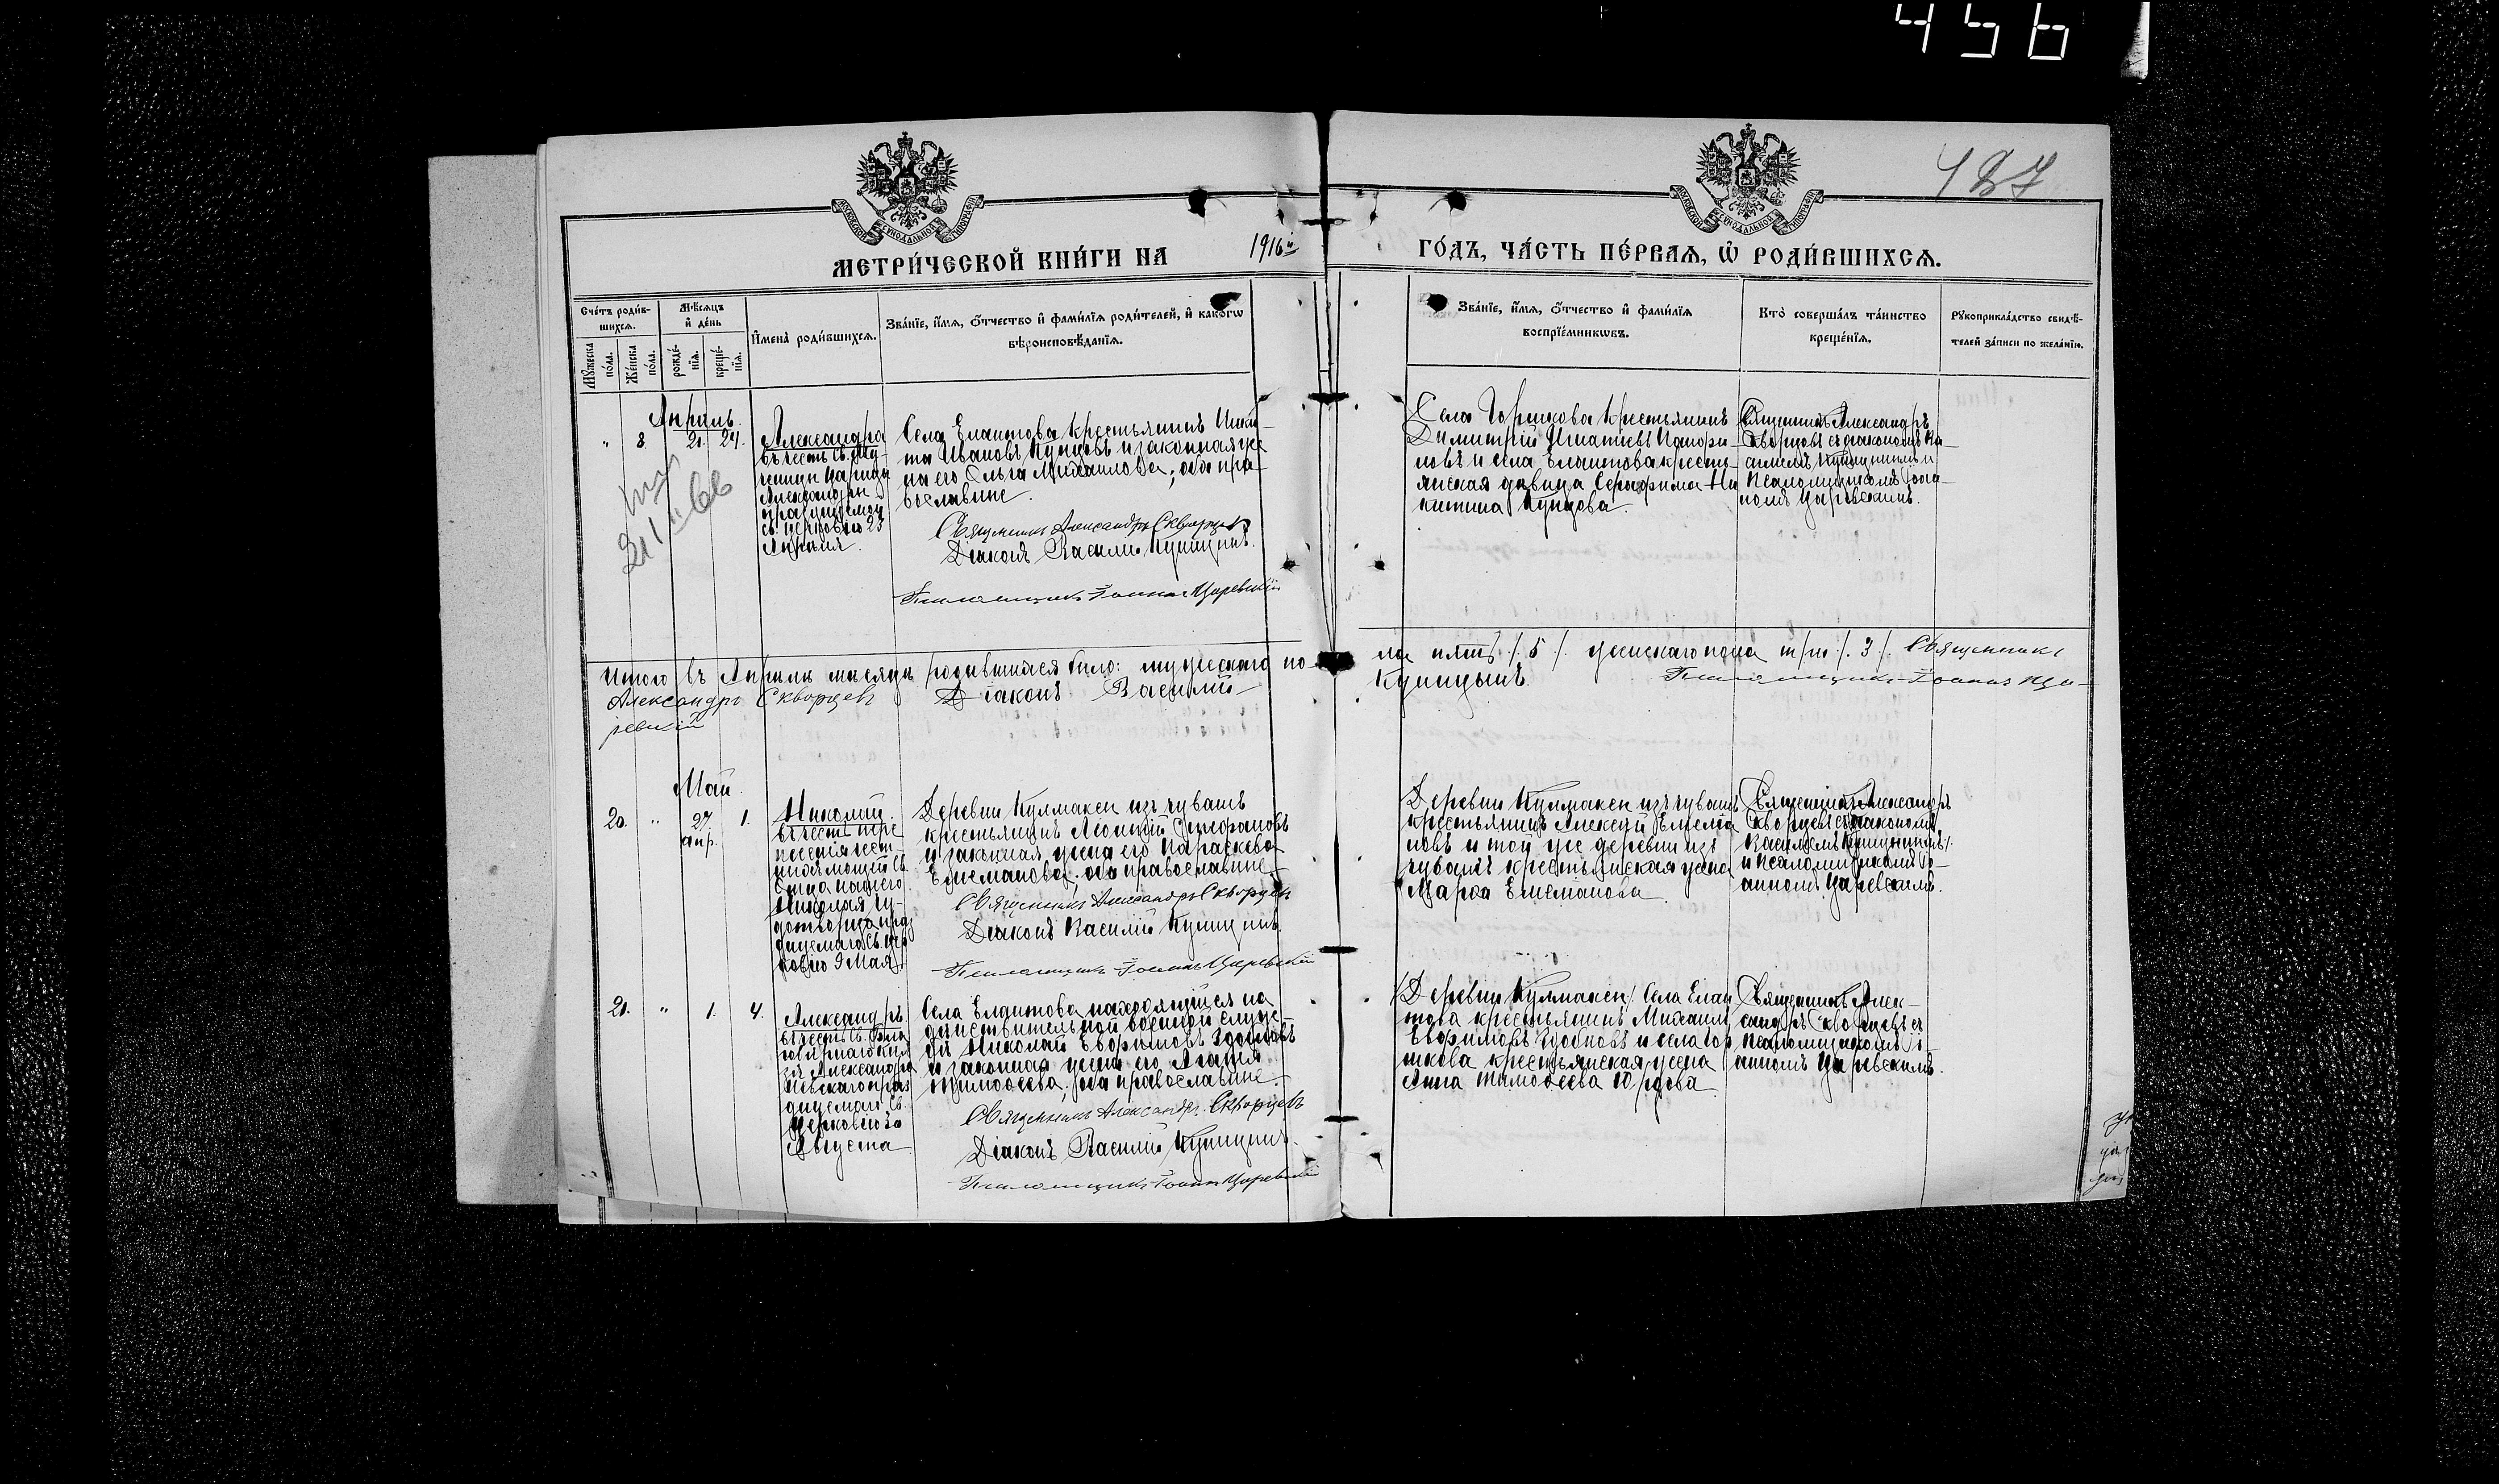 456
487
МЕТРИ́ЧЕСКОЙ КНИ́ГИ НА 1916й ГО́ДЪ, ЧА́СТЬ ПЕ́РВАѦ, Ѡ҆ РОДИ́ВШИХСѦ.
Сче́тъ роди́в-
шихсѧ.
Мѣ́сѧцъ
и҆ де́нь
Мꙋ́жеска по́ла.
Же́нска по́ла.
рожде́-
нїѧ.
креще́-
нїѧ.
И҆мена̀ роди́вшихсѧ.
Зва́нїе, и҆́мѧ, ѻ҆́тчество и҆ фами́лїѧ роди́телей, и҆ како́гѡ
вѣроисповѣ́данїѧ.
Зва́нїе, и҆́мѧ, ѻ҆́тчество и҆ фами́лїѧ
воспрїе́мникѡвъ.
Кто̀ соверша́лъ та́инство
креще́нїѧ.
Рꙋкоприкла́дство свидѣ́-
телей за́писи по жела́нїю.
Апрѣль.
" 8. 21. 24.
Александра
въ честь св. Му-
ченицы Царицы
Александры
празднуемой
св. церковію 23
Апрѣля.
Села Елаитова крестьянинъ Ники-
та Ивановъ Купцовъ и законная же-
на его Ольга Михаилова; оба пра-
вославные.
Священникъ Александръ Скворцевъ
Діаконъ Василій Купицынъ.
Псаломщикъ Іоаннъ Царевскій
Села Горшкова крестьянинъ
Димитрій Игнатіевъ
и села Елаитова кресть-
янская дѣвица Серафима Ни-
китина Купцова.
Священникъ Александръ
Скворцевъ съ діакономъ Ва-
силіемъ Купицынымъ и
Псаломщикомъ Іоан-
номъ Царевскимъ.
Итого въ Апрѣлѣ мѣсяцѣ родившихся было: мужескаго по-
ла пять /5/ женскаго пола три /3/. Священникъ
Александръ Скворцевъ Діаконъ Василій
Купицынъ. Псаломщикъ Іоаннъ Ца-
ревскій
Май.
20. " 27 апр. 1.
Николай.
въ честь пере-
несенія чест-
ныхъ мощей Св.
Отца нашего
Николая чу-
дотворца праз-
днуемаго св. цер-
ковію 9 Мая.
Деревни Кулмаксы изъ чувашъ
крестьянинъ Леонтій Стефановъ
и законная жена его Параскева
Емеліанова; оба православные.
Священникъ Александръ Скворцевъ
Діаконъ Василій Купицынъ.
Псаломщикъ Іоаннъ Царевскій
Деревни Кулмаксы изъ чувашъ
крестьянинъ Алексѣй Емелiа-
новъ и той же деревни изъ
чувашъ крестьянская жена
Марѳа Емеліанова.
Священникъ Александръ
Скворцевъ съ діакономъ
Василіемъ Купицынымъ
и Псаломщикомъ Іо-
анномъ Царевскимъ.
21. " 1. 4.
Александръ
въ честь св. Бла-
говѣрнаго кня-
зя Александра
Невскаго праз-
днуемаго Св.
Церковію 30
Августа.
Села Елаитова находящійся на
дѣйствительной военной служ-
бѣ Николай Евѳимовъ
и законная жена его
Тимоѳеева; оба православные.
Священникъ Александръ Скворцевъ
Діаконъ Василій Купицынъ.
Псаломщикъ Іоаннъ Царевскій
/Деревни Кулмаксы/. Села Елаи-
това крестьянинъ Михаилъ
Евѳимовъ и села Гор-
шкова крестьянская жена
Анна Тимоѳеева
Священникъ Алек-
сандръ Скворцевъ съ
Псаломщикомъ Іо-
анномъ Царевскимъ.